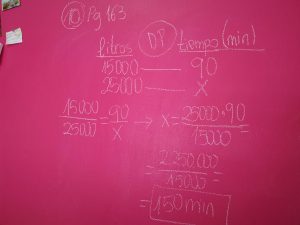 10 Pg 163
litros DP tiempo (min)
15000 — 90
25000 — x
15000/25000 = 90/x → x = 25000·90/15000 =
= 2.250.000/15000 =
= 150 min